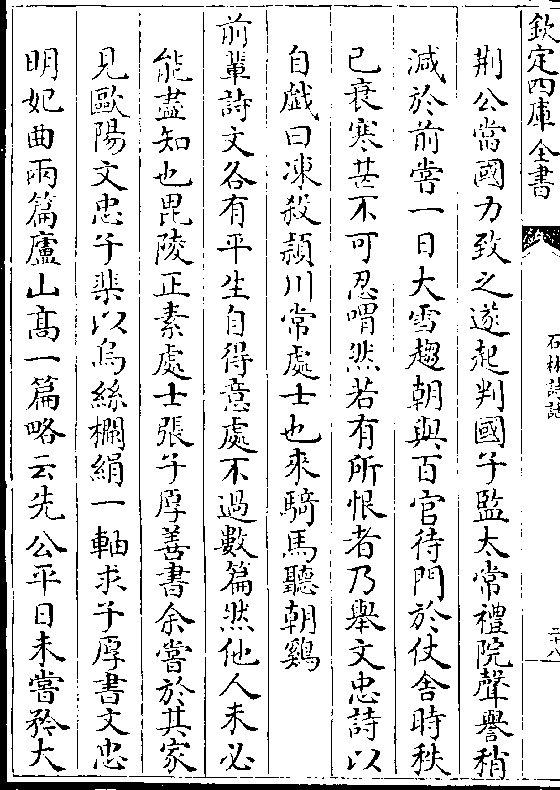 欽定四庫全書
石林詩話
二十八
荆公當國力致之遂起判國子監太常禮院聲譽稍
減於前嘗一日大雪趨朝與百官待門於仗舍時秩
已衰寒甚不可忍喟然若有所恨者乃舉文忠詩以
自戲曰凍殺潁川常處士也來騎馬聽朝鷄
前輩詩文各有平生自得意處不過數篇然他人未必
能盡知也毘陵正素處士張子厚善書余嘗於其家
見歐陽文忠子棐以烏絲欄絹一軸求子厚書文忠
明妃曲兩篇廬山髙一篇略云先公平日未嘗矜大